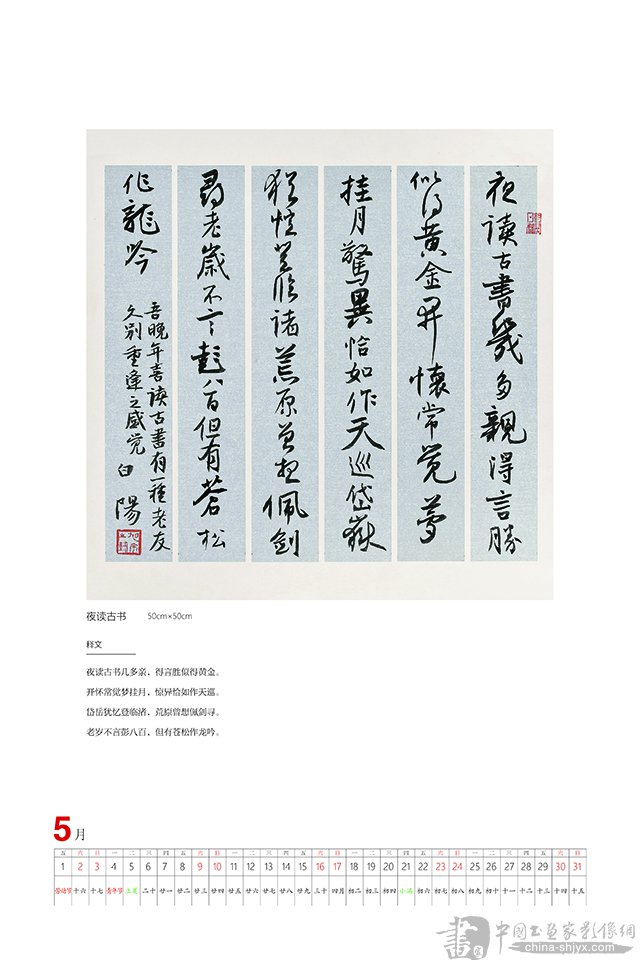 夜读古書幾多親得言勝
似得黄金開懷常觉夢
挂月驚異恰如作天巡岱嶽
猶憶登临诸荒原曾想佩剑
尋老歲不言彭八百但有苍松
作龍吟
吾晚年喜读古書有一種老友
久别重逢之感觉 白陽
夜读古书 50cm×50cm
释文
夜读古书几多亲，得言胜似得黄金。
开怀常觉梦挂月，惊异恰如作天巡。
岱岳犹忆登临渚，荒原曾想佩剑寻。
老岁不言彭八百，但有苍松作龙吟。
5月
五 六 日 一 二 三 四 五 六 日 一 二 三 四 五 六 日 一 二 三 四 五 六 日 一 二 三 四 五 六 日
1 2 3 4 5 6 7 8 9 10 11 12 13 14 15 16 17 18 19 20 21 22 23 24 25 26 27 28 29 30 31
劳动节 十六 十七 青年节 立夏 二十 廿一 廿二 廿三 廿四 廿五 廿六 廿七 廿八 廿九 三十 四月 初二 初三 初四 小满 初六 初七 初八 初九 初十 十一 十二 十三 十四 十五
書 中國书画家影像網
china-shjyx.com